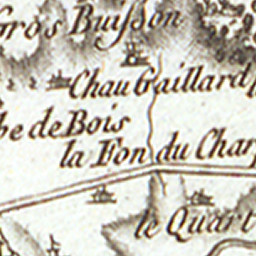 Gros Buisson
Chau Gaillard
be de Bois
la Fon du Char
le Quart